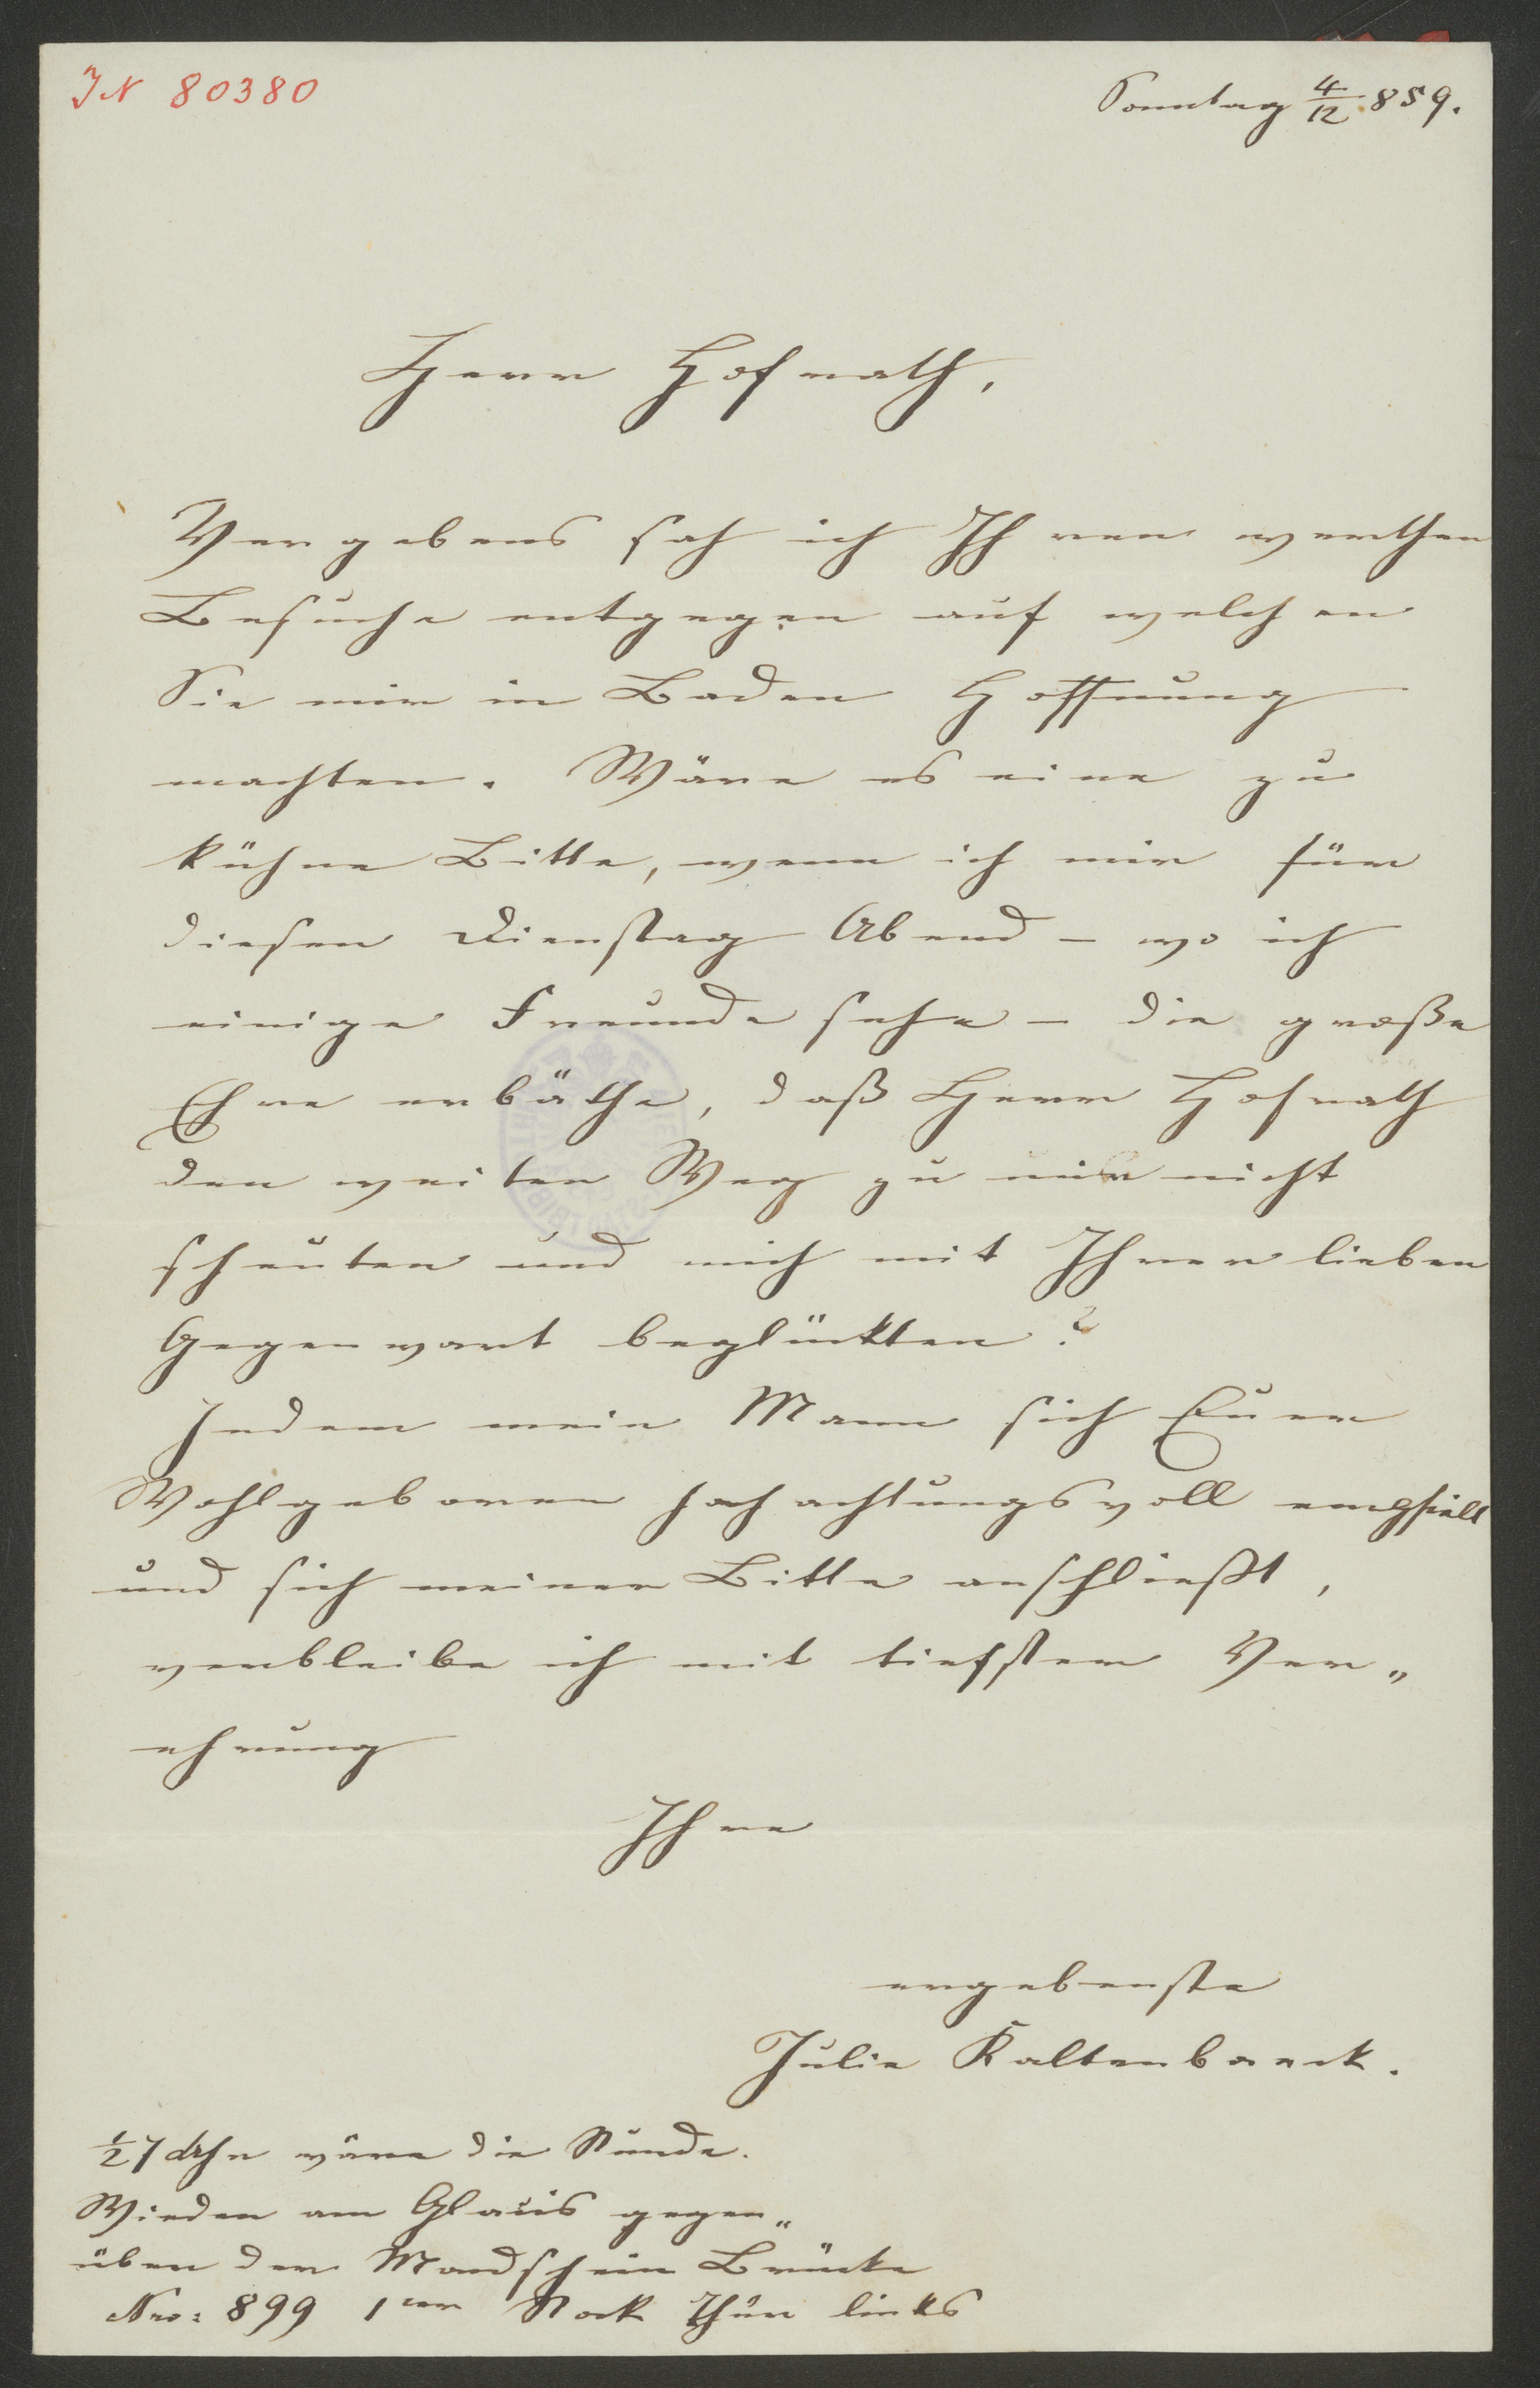 IN 80380
Sonntag 4/12 859.
Herr Hofrath,
Vergebens sah ich Ihrem werthen
Besuche entgegen auf welchen
Sie mir in Baden Hoffnung
machten. Wäre es eine zu
kühne Bitte, wenn ich mir für
diesen Dienstag Abend – wo ich
einige Freunde sehe – die große
Ehre erbäthe, daß Herr Hofrath
den weiten Weg zu mir nicht
scheuten und mich mit Ihrer lieben
Gegenwart beglückten?
Indem mein Mann sich Euer
Wohlgeboren hochachtungsvoll empfielt
und sich meiner Bitte anschließt,
verbleibe ich mit tiefster Ver„
ehrung
Ihre
ergebenste
Julie Kaltenbaeck.
½ 7 Uhr wäre die Stunde.
Wieden am Glacis gegen„
über der Mondschein Brücke
Nro: 899 1ter Stock Thür links